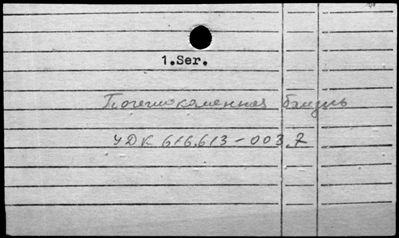 1.Ser.
Почечнокаменная болезнь
УДК 616.613-003.7